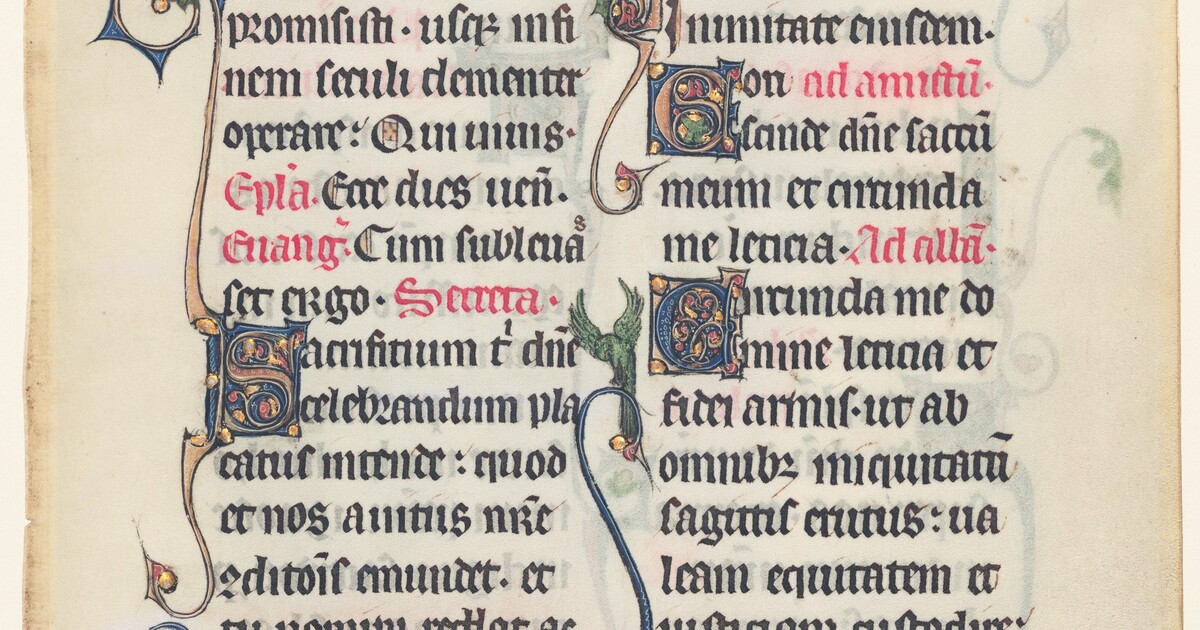 promisisti · usq̷ in fi
nem seculi clementer
operare : Qui uiuis ·
Ep̄la · Ecce dies uen̄ ·
Euang̃ · Cum subleuaͣs
set ergo · Secreta ·
Sacrificium tͥ dn̄e
celebrandum pla
catus intende : quod
et nos a uitiis nr̄e
ꝯditōis emundet · et
tuo nomini reddat ac
inmitate eiusdem ·
ad amictū ·
Scinde dn̄e saccū
meum et circunda
me leticia ·
Circunda me do
mine leticia et
fidei armis · ut ab
omnibꝫ iniquitatū
sagittis erutus : ua
leam equitatem et
iusticiam custodire ·